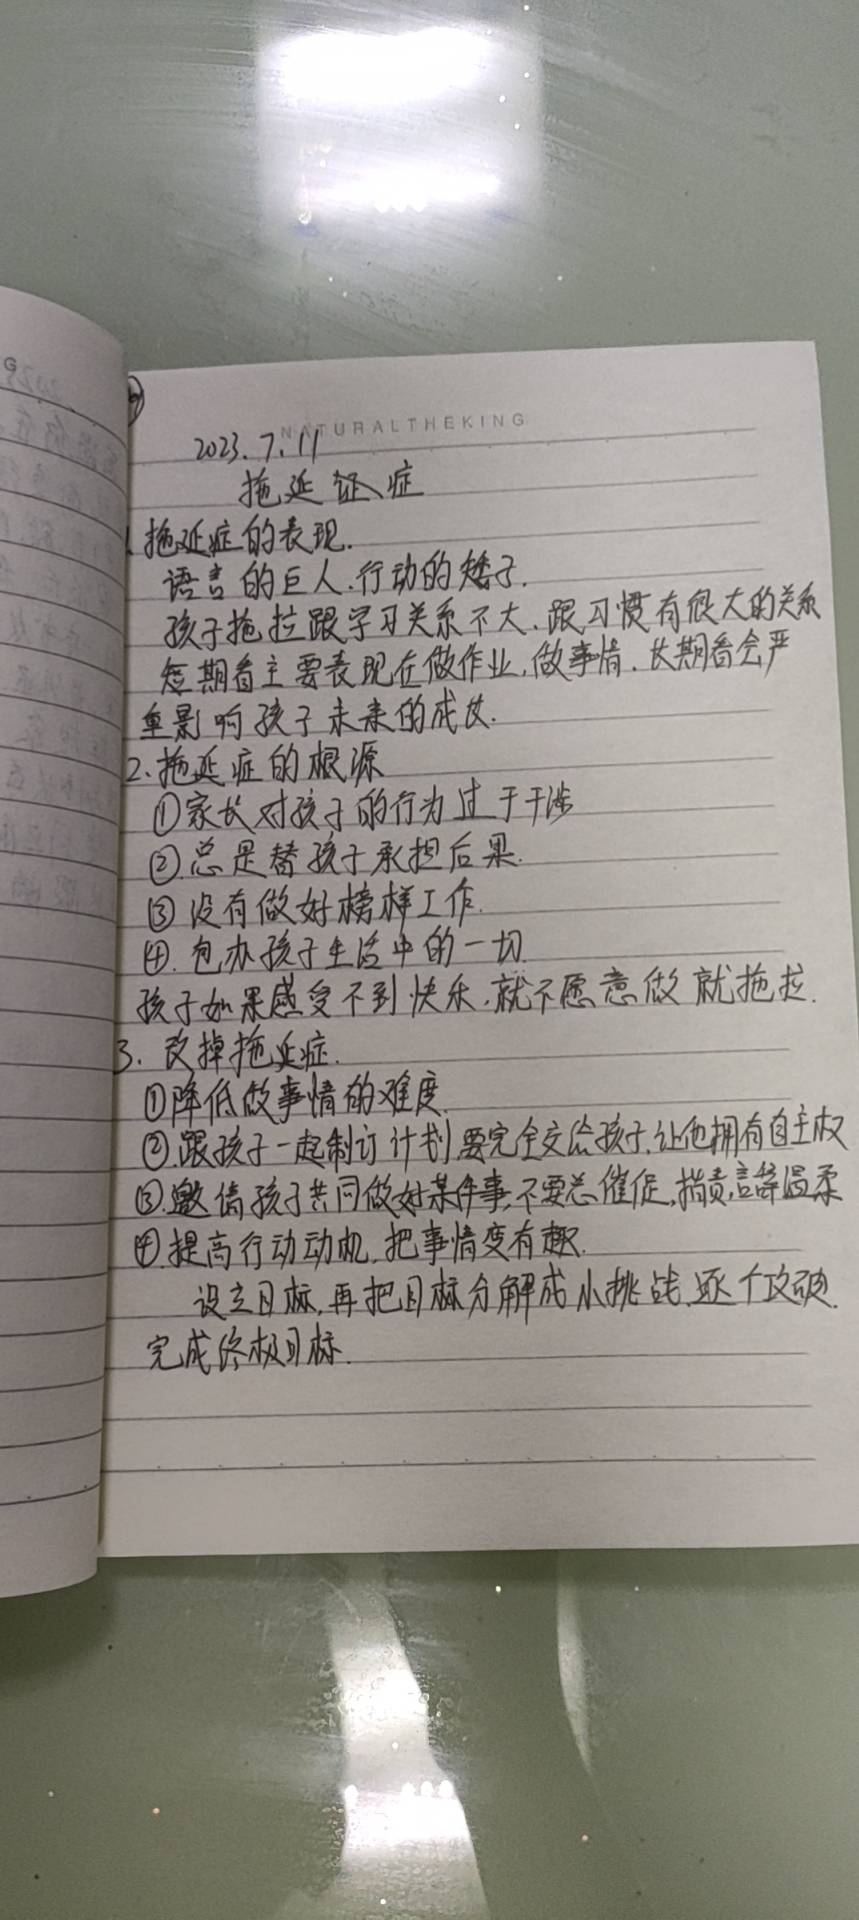 NATURALTHEKING
2023.7.11
拖延征症
1.拖延症的表现.
语言的巨人.行动的矮子.
孩子拖拉跟学习关系不大.跟习惯有很大的关系
短期看主要表现在做作业,做事情.长期看会严
重影响孩子未来的成
2.拖延症的根源
①家长对孩子的行为过于干涉
②总是替孩子承担后果.
③没有做好榜样工作.
④.包办孩子生活中的一切.
孩子如果感受不到快乐.就不愿意做就拖拉.
3.改掉拖延症.
①降低做事情的难度.
②.跟孩子一起制订计划,要完全交给孩子,让他拥有自主权
③.邀请孩子共同做好某件事,不要总催促,指责,言辞温柔
④.提高行动动机,把事情变有趣.
设立目标,再把目标分解成小挑战.逐个攻破.
完成终极目标.